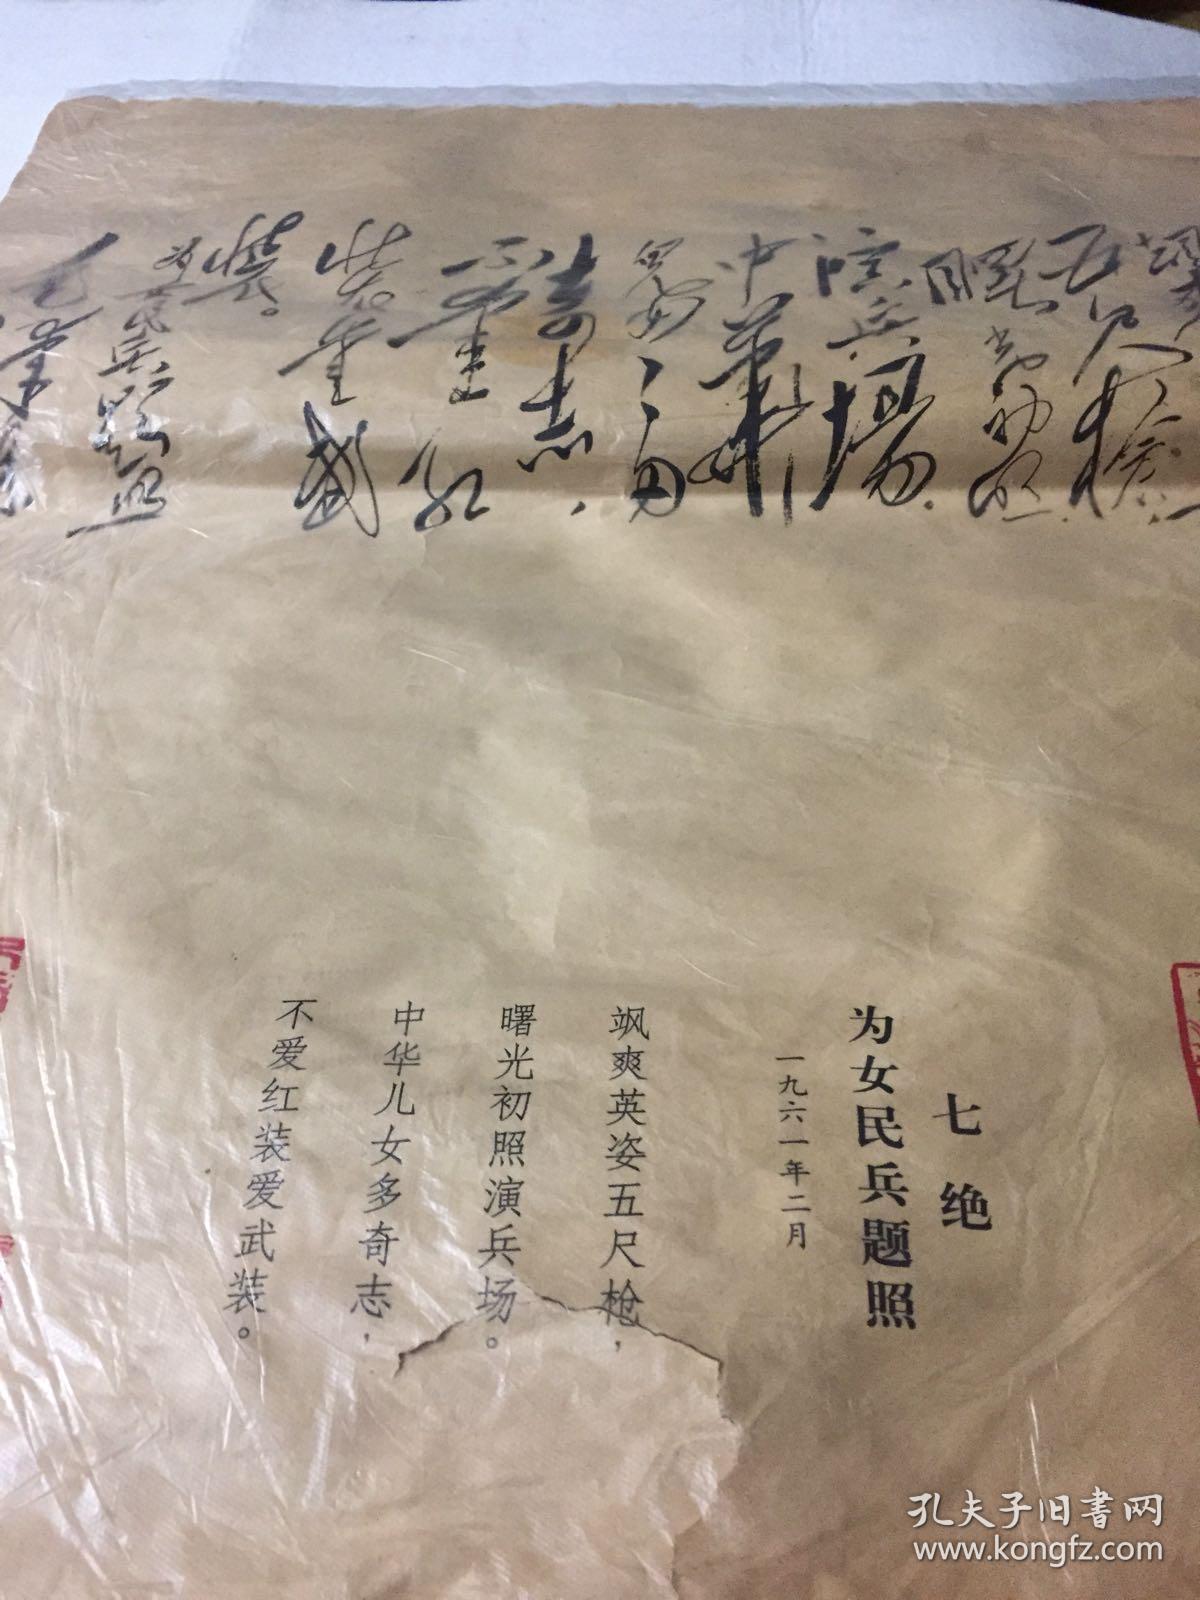 五尺枪，
曙光初照
演兵场。
中华
儿女多
奇志，
不爱红
装爱武
装。
为女民兵题照
毛泽东
七绝
为女民兵题照
一九六一年二月
飒爽英姿五尺枪，
曙光初照演兵场。
中华儿女多奇志，
不爱红装爱武装。
孔夫子旧书网
www.kongfz.com